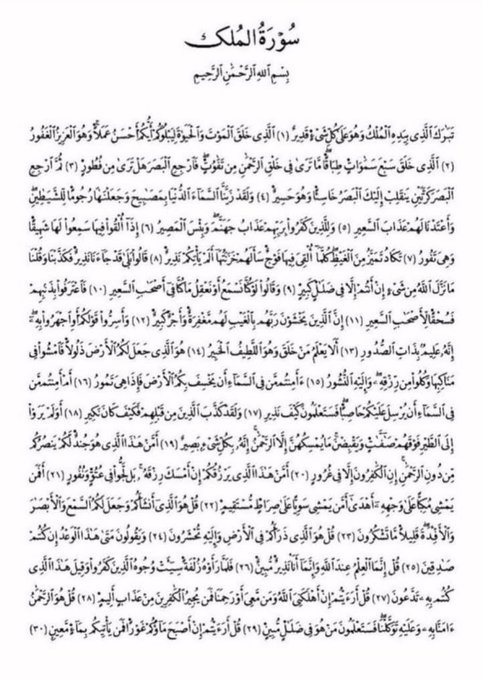 سُورَةُ المُلك
بِسْمِ ٱللَّهِ ٱلرَّحْمَٰنِ ٱلرَّحِيمِ
تَبَٰرَكَ ٱلَّذِى بِيَدِهِ ٱلْمُلْكُ وَهُوَ عَلَىٰ كُلِّ شَىْءٍ قَدِيرٌ (١) ٱلَّذِى خَلَقَ ٱلْمَوْتَ وَٱلْحَيَوٰةَ لِيَبْلُوَكُمْ أَيُّكُمْ أَحْسَنُ عَمَلًا وَهُوَ ٱلْعَزِيزُ ٱلْغَفُورُ
(٢) ٱلَّذِى خَلَقَ سَبْعَ سَمَٰوَٰتٍ طِبَاقًا مَّا تَرَىٰ فِى خَلْقِ ٱلرَّحْمَٰنِ مِن تَفَٰوُتٍ فَٱرْجِعِ ٱلْبَصَرَ هَلْ تَرَىٰ مِن فُطُورٍ (٣) ثُمَّ ٱرْجِعِ
ٱلْبَصَرَ كَرَّتَيْنِ يَنقَلِبْ إِلَيْكَ ٱلْبَصَرُ خَاسِئًا وَهُوَ حَسِيرٌ (٤) وَلَقَدْ زَيَّنَّا ٱلسَّمَآءَ ٱلدُّنْيَا بِمَصَٰبِيحَ وَجَعَلْنَٰهَا رُجُومًا لِّلشَّيَٰطِينِ
وَأَعْتَدْنَا لَهُمْ عَذَابَ ٱلسَّعِيرِ (٥) وَلِلَّذِينَ كَفَرُوا۟ بِرَبِّهِمْ عَذَابُ جَهَنَّمَ وَبِئْسَ ٱلْمَصِيرُ (٦) إِذَآ أُلْقُوا۟ فِيهَا سَمِعُوا۟ لَهَا شَهِيقًا
وَهِىَ تَفُورُ (٧) تَكَادُ تَمَيَّزُ مِنَ ٱلْغَيْظِ كُلَّمَآ أُلْقِىَ فِيهَا فَوْجٌ سَأَلَهُمْ خَزَنَتُهَآ أَلَمْ يَأْتِكُمْ نَذِيرٌ (٨) قَالُوا۟ بَلَىٰ قَدْ جَآءَنَا نَذِيرٌ فَكَذَّبْنَا وَقُلْنَا
مَا نَزَّلَ ٱللَّهُ مِن شَىْءٍ إِنْ أَنتُمْ إِلَّا فِى ضَلَٰلٍ كَبِيرٍ (٩) وَقَالُوا۟ لَوْ كُنَّا نَسْمَعُ أَوْ نَعْقِلُ مَا كُنَّا فِىٓ أَصْحَٰبِ ٱلسَّعِيرِ (١٠) فَٱعْتَرَفُوا۟ بِذَنۢبِهِمْ
فَسُحْقًا لِّأَصْحَٰبِ ٱلسَّعِيرِ (١١) إِنَّ ٱلَّذِينَ يَخْشَوْنَ رَبَّهُم بِٱلْغَيْبِ لَهُم مَّغْفِرَةٌ وَأَجْرٌ كَبِيرٌ (١٢) وَأَسِرُّوا۟ قَوْلَكُمْ أَوِ ٱجْهَرُوا۟ بِهِۦٓ
إِنَّهُۥ عَلِيمٌۢ بِذَاتِ ٱلصُّدُورِ (١٣) أَلَا يَعْلَمُ مَنْ خَلَقَ وَهُوَ ٱللَّطِيفُ ٱلْخَبِيرُ (١٤) هُوَ ٱلَّذِى جَعَلَ لَكُمُ ٱلْأَرْضَ ذَلُولًا فَٱمْشُوا۟ فِى
مَنَاكِبِهَا وَكُلُوا۟ مِن رِّزْقِهِۦ وَإِلَيْهِ ٱلنُّشُورُ (١٥) ءَأَمِنتُم مَّن فِى ٱلسَّمَآءِ أَن يَخْسِفَ بِكُمُ ٱلْأَرْضَ فَإِذَا هِىَ تَمُورُ (١٦) أَمْ أَمِنتُم مَّن
فِى ٱلسَّمَآءِ أَن يُرْسِلَ عَلَيْكُمْ حَاصِبًا فَسَتَعْلَمُونَ كَيْفَ نَذِيرِ (١٧) وَلَقَدْ كَذَّبَ ٱلَّذِينَ مِن قَبْلِهِمْ فَكَيْفَ كَانَ نَكِيرِ (١٨) أَوَلَمْ يَرَوْا۟
إِلَى ٱلطَّيْرِ فَوْقَهُمْ صَٰٓفَّٰتٍ وَيَقْبِضْنَ مَا يُمْسِكُهُنَّ إِلَّا ٱلرَّحْمَٰنُ إِنَّهُۥ بِكُلِّ شَىْءٍۭ بَصِيرٌ (١٩) أَمَّنْ هَٰذَا ٱلَّذِى هُوَ جُندٌ لَّكُمْ يَنصُرُكُم
مِّن دُونِ ٱلرَّحْمَٰنِ إِنِ ٱلْكَٰفِرُونَ إِلَّا فِى غُرُورٍ (٢٠) أَمَّنْ هَٰذَا ٱلَّذِى يَرْزُقُكُمْ إِنْ أَمْسَكَ رِزْقَهُۥ بَل لَّجُّوا۟ فِى عُتُوٍّ وَنُفُورٍ (٢١) أَفَمَن
يَمْشِى مُكِبًّا عَلَىٰ وَجْهِهِۦٓ أَهْدَىٰٓ أَمَّن يَمْشِى سَوِيًّا عَلَىٰ صِرَٰطٍ مُّسْتَقِيمٍ (٢٢) قُلْ هُوَ ٱلَّذِىٓ أَنشَأَكُمْ وَجَعَلَ لَكُمُ ٱلسَّمْعَ وَٱلْأَبْصَٰرَ
وَٱلْأَفْـِٔدَةَ قَلِيلًا مَّا تَشْكُرُونَ (٢٣) قُلْ هُوَ ٱلَّذِى ذَرَأَكُمْ فِى ٱلْأَرْضِ وَإِلَيْهِ تُحْشَرُونَ (٢٤) وَيَقُولُونَ مَتَىٰ هَٰذَا ٱلْوَعْدُ إِن كُنتُمْ
صَٰدِقِينَ (٢٥) قُلْ إِنَّمَا ٱلْعِلْمُ عِندَ ٱللَّهِ وَإِنَّمَآ أَنَا۠ نَذِيرٌ مُّبِينٌ (٢٦) فَلَمَّا رَأَوْهُ زُلْفَةً سِيٓـَٔتْ وُجُوهُ ٱلَّذِينَ كَفَرُوا۟ وَقِيلَ هَٰذَا ٱلَّذِى
كُنتُم بِهِۦ تَدَّعُونَ (٢٧) قُلْ أَرَءَيْتُمْ إِنْ أَهْلَكَنِىَ ٱللَّهُ وَمَن مَّعِىَ أَوْ رَحِمَنَا فَمَن يُجِيرُ ٱلْكَٰفِرِينَ مِنْ عَذَابٍ أَلِيمٍ (٢٨) قُلْ هُوَ ٱلرَّحْمَٰنُ
ءَامَنَّا بِهِۦ وَعَلَيْهِ تَوَكَّلْنَا فَسَتَعْلَمُونَ مَنْ هُوَ فِى ضَلَٰلٍ مُّبِينٍ (٢٩) قُلْ أَرَءَيْتُمْ إِنْ أَصْبَحَ مَآؤُكُمْ غَوْرًا فَمَن يَأْتِيكُم بِمَآءٍ مَّعِينٍۭ (٣٠)